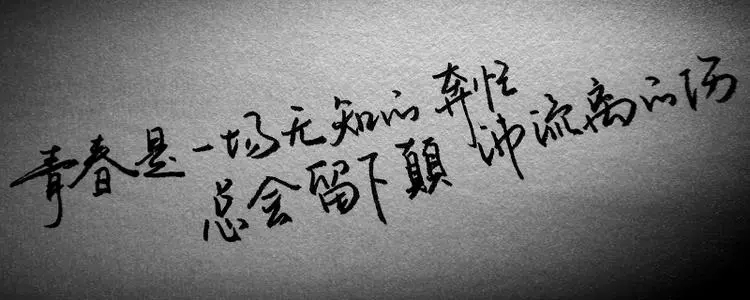 青春是一场无知的奔忙
总会留下颠沛流离的伤